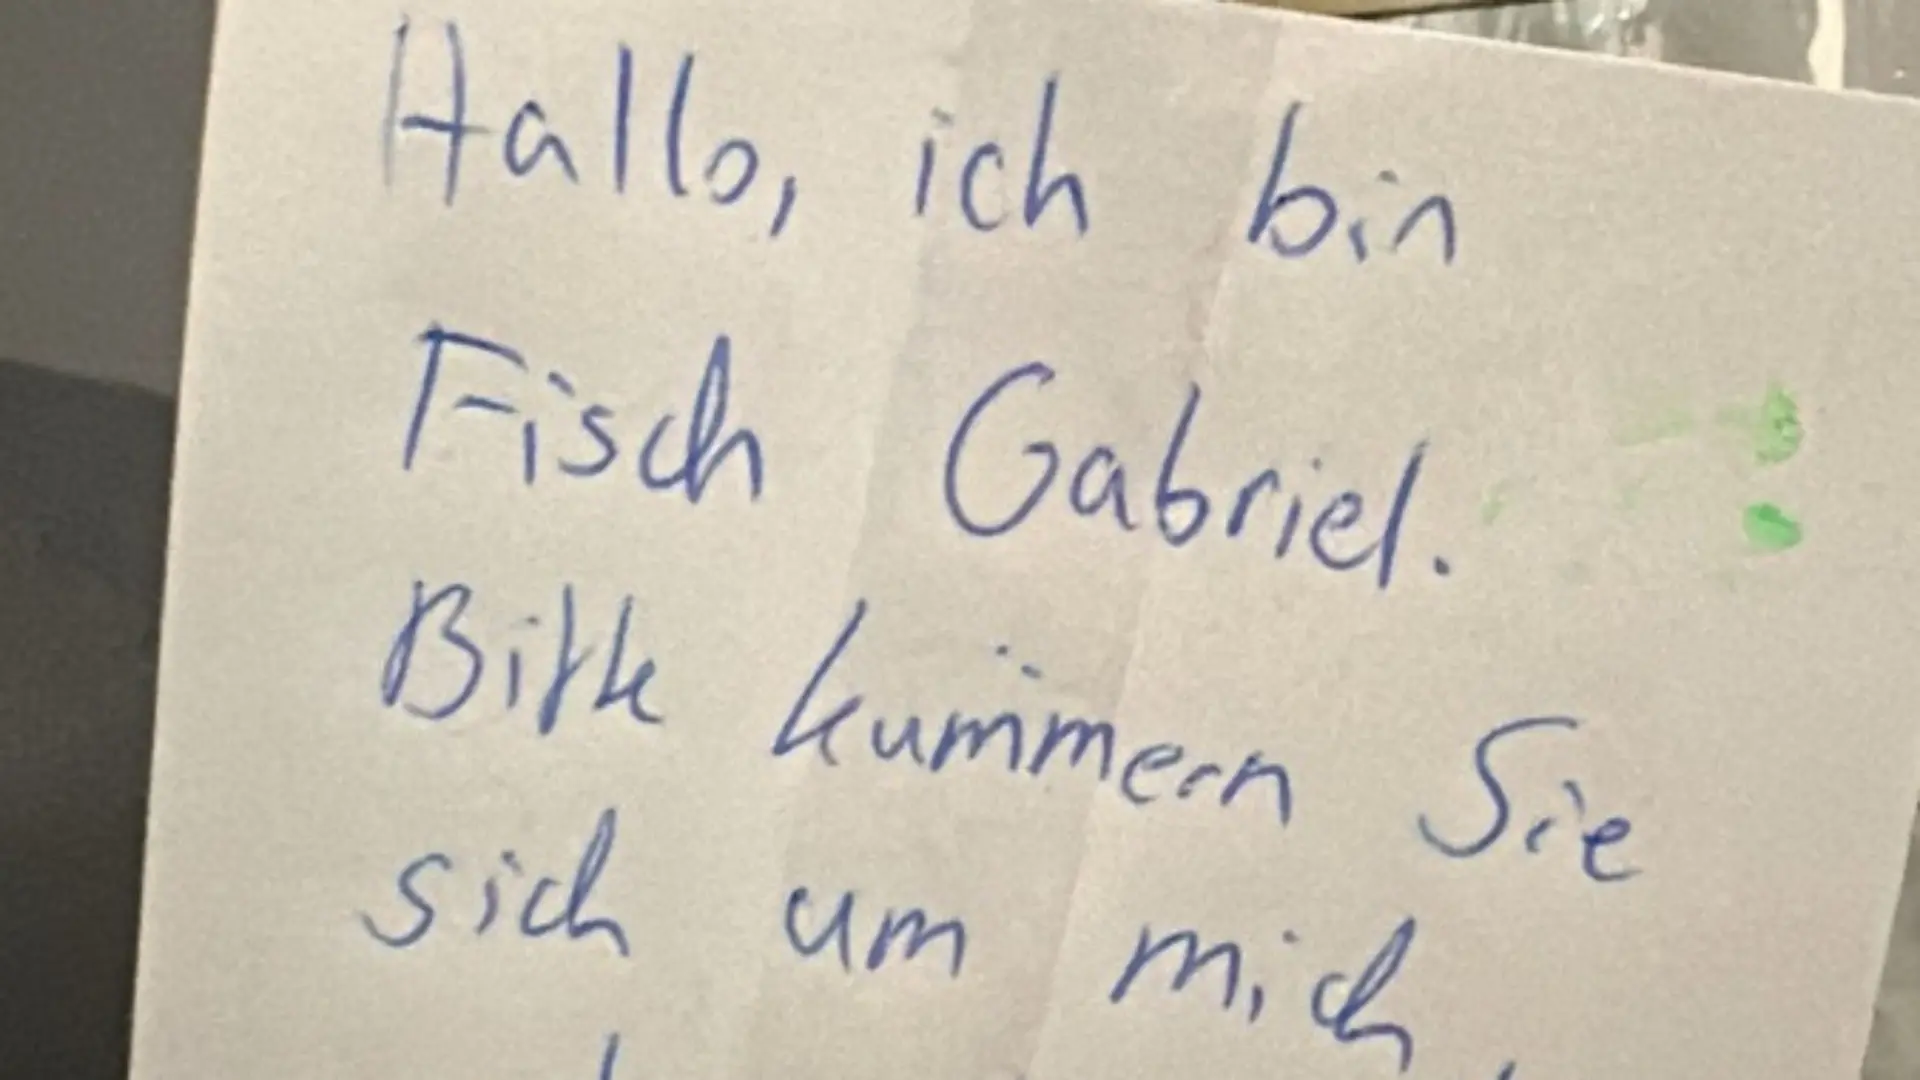 Hallo, ich bin
Fisch Gabriel.
Bitte kümmern Sie
sich um mich